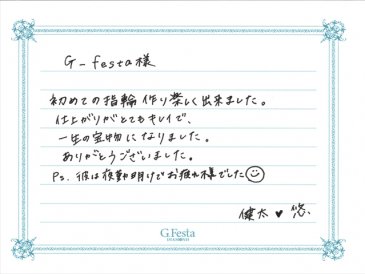 G-festa様
初めての指輪作り楽しく出来ました。
仕上がりがとてもキレイで、
一生の宝物になりました。
ありがとうございました。
Ps. 彼は夜勤明けでお疲れ様でした
健太 ♥ 悠
G.Festa